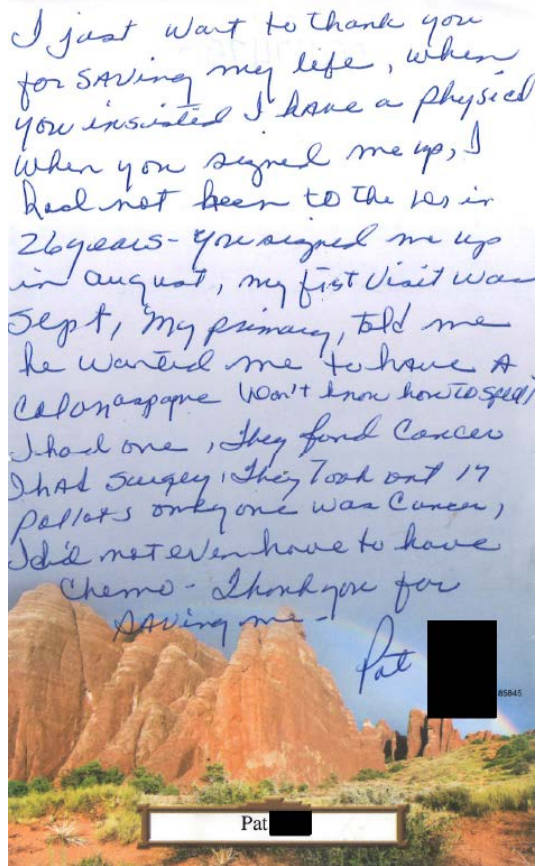 I just want to thank you
for SAVING my life, when
you insisted I have a physical
when you signed me up, I
had not been to the in
26 years - You signed me up
in august, my fist Visit was
Sept, My primary, told me
he wanted me to have A
Colonaspapne (don't know how to spell)
I had one, they fond Cancer
I had surgey, they Took out 17
pollots only one was Cancer,
I did not even have to have
Chemo - Thank you for
SAVING me -
Pat
85845
Pat